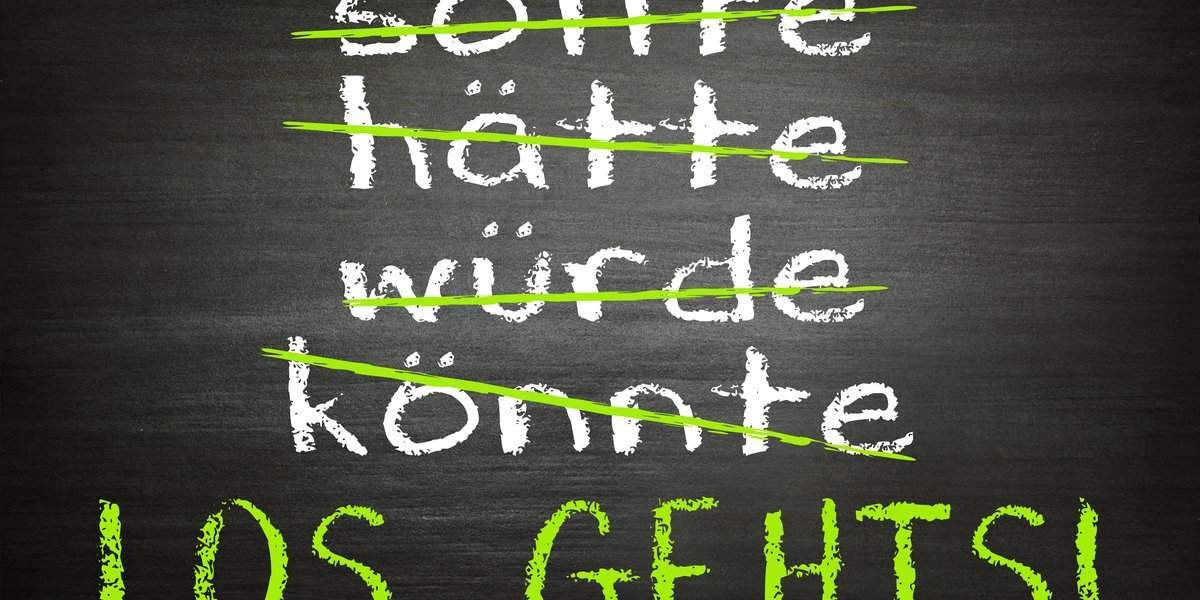 sollte
hätte
würde
könnte
LOS GEHTS!